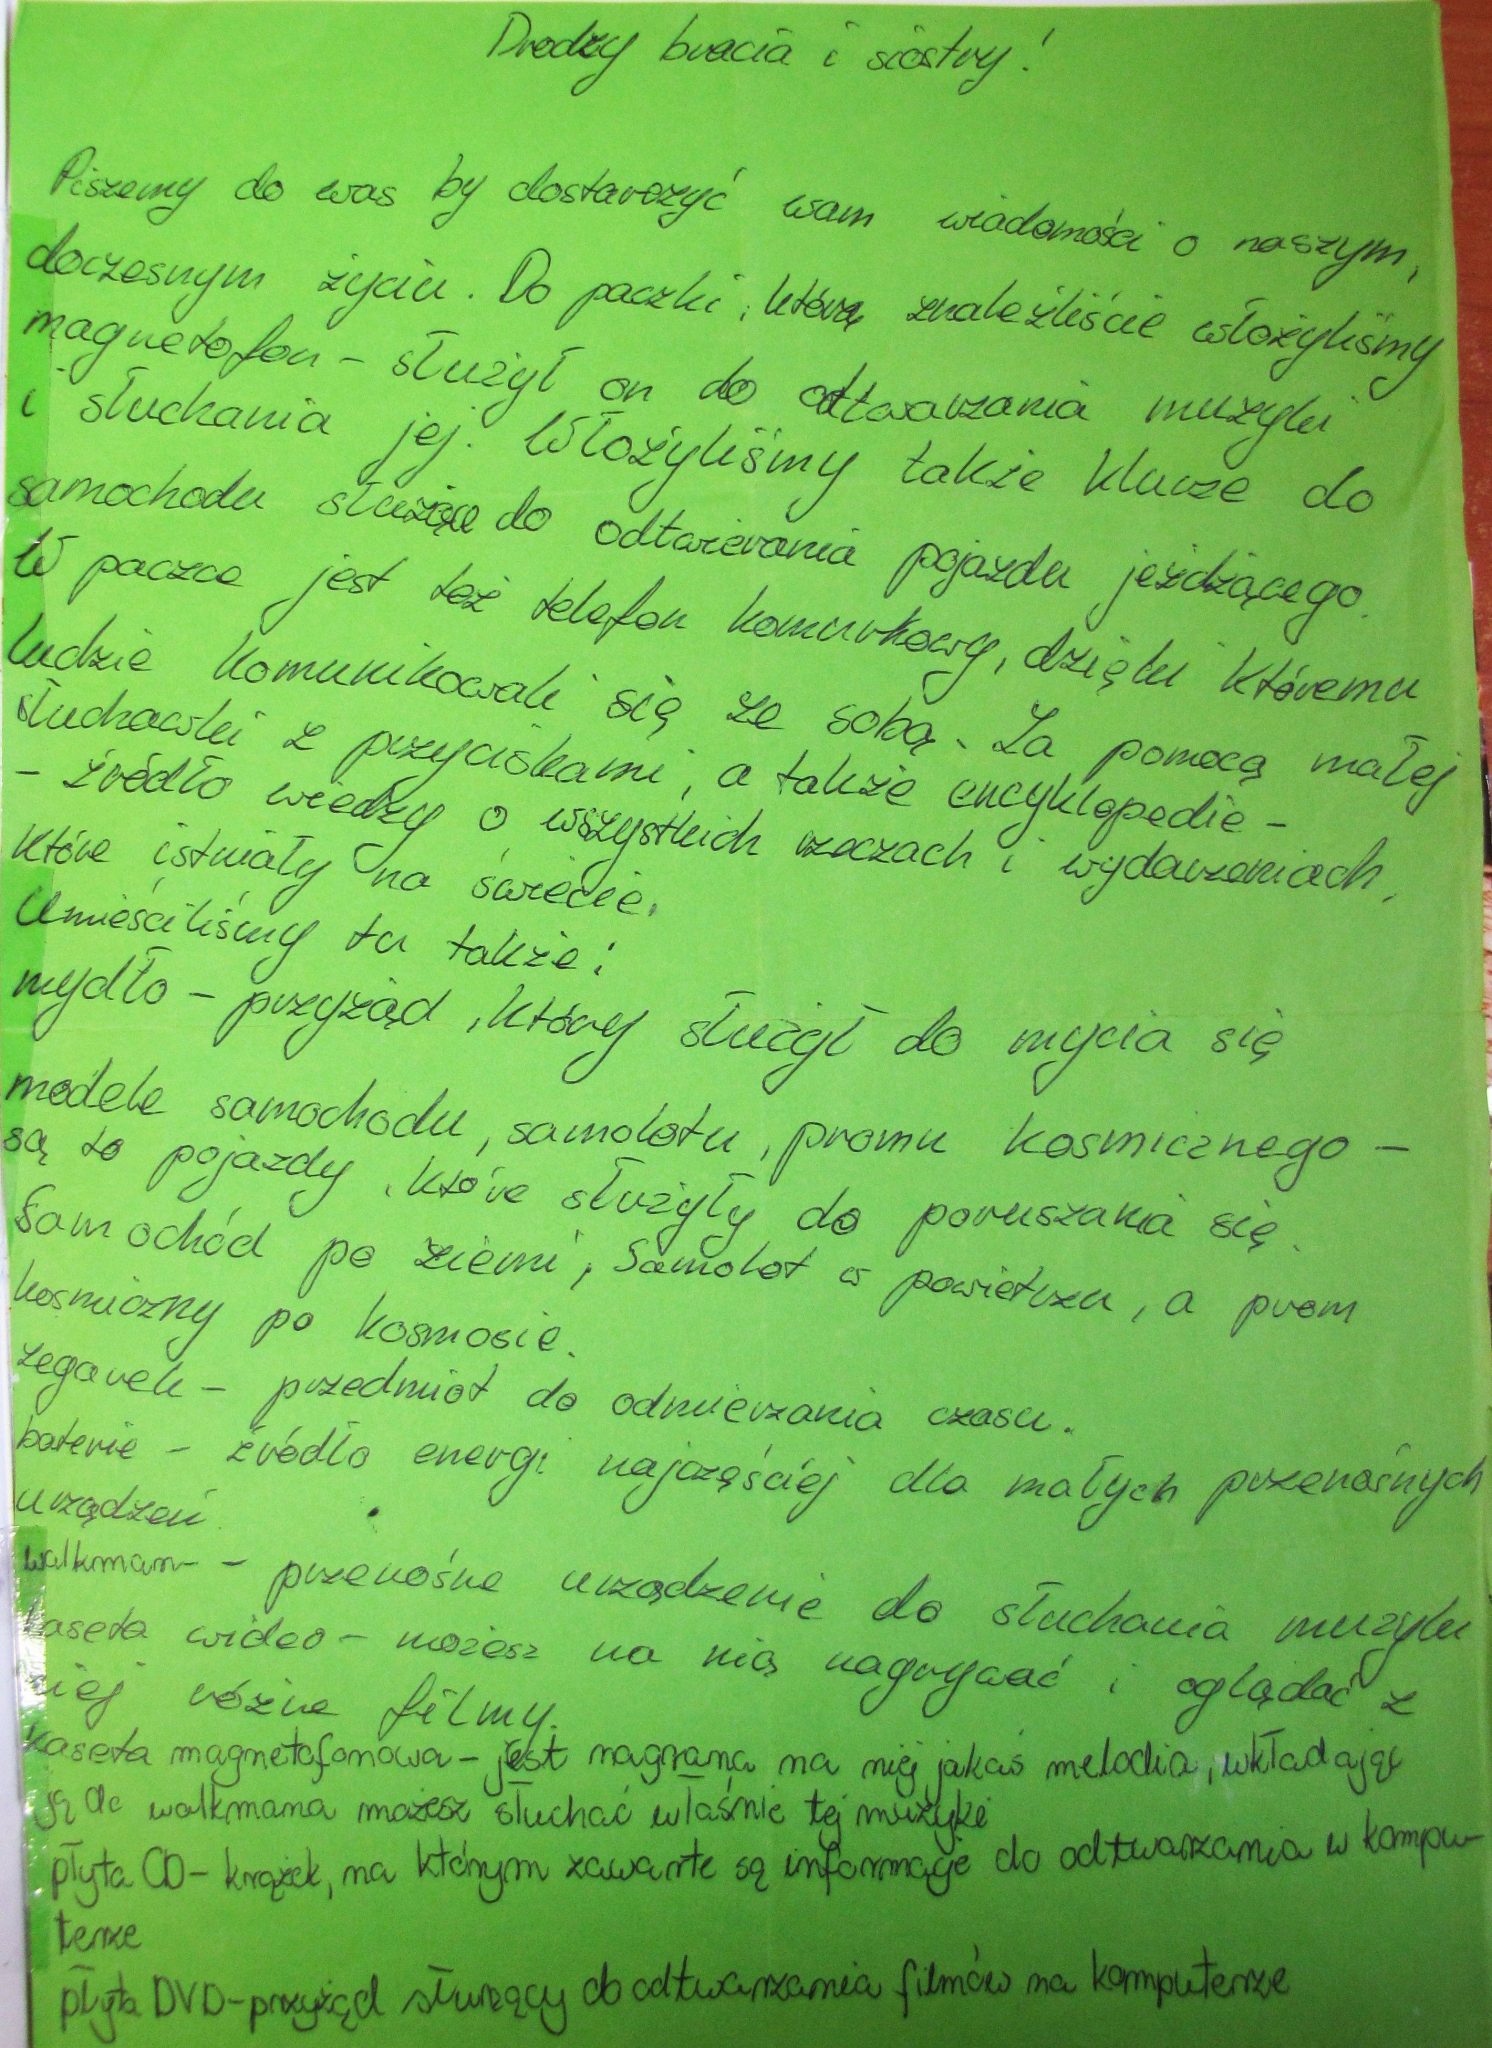 Drodzy bracia i siostry!
Piszemy do was by dostarczyć wam wiadomości o naszym,
doczesnym życiu. Do paczki, którą znaleźliście włożyliśmy
magnetofon - służył on do odtwarzania muzyki
i słuchania jej. Włożyliśmy także klucze do
samochodu służące do odtwierania pojazdu jeżdżącego.
W paczce jest też telefon komurkowy, dzięki któremu
ludzie komunikowali się ze sobą. Za pomocą małej
słuchawki z przyciskami, a także encyklopedie -
- źródło wiedzy o wszystkich rzeczach i wydarzeniach,
które istniały na świecie.
Umieściliśmy tu także:
mydło - przyrząd, który służył do mycia się
modele samochodu, samolotu, promu kosmicznego -
są to pojazdy, które służyły do poruszania się.
Samochód po ziemi, Samolot w powietrzu, a prom
kosmiczny po kosmosie.
zegarek - przedmiot do odmierzania czasu.
baterie - źródło energi najczęściej dla małych przenośnych
urządzeń
walkman - przenośne urządzenie do słuchania muzyki
kaseta wideo - możesz na nią nagrywać i oglądać z
niej różne filmy.
kaseta magnetofonowa - jest nagrana na niej jakaś melodia, wkładając
ją do walkmana możesz słuchać właśnie tej muzyki
płyta CD - krążek, na którym zawarte są informacje do odtwarzania w kompu-
terze
płyta DVD - przyrząd służący do odtwarzania filmów na komputerze